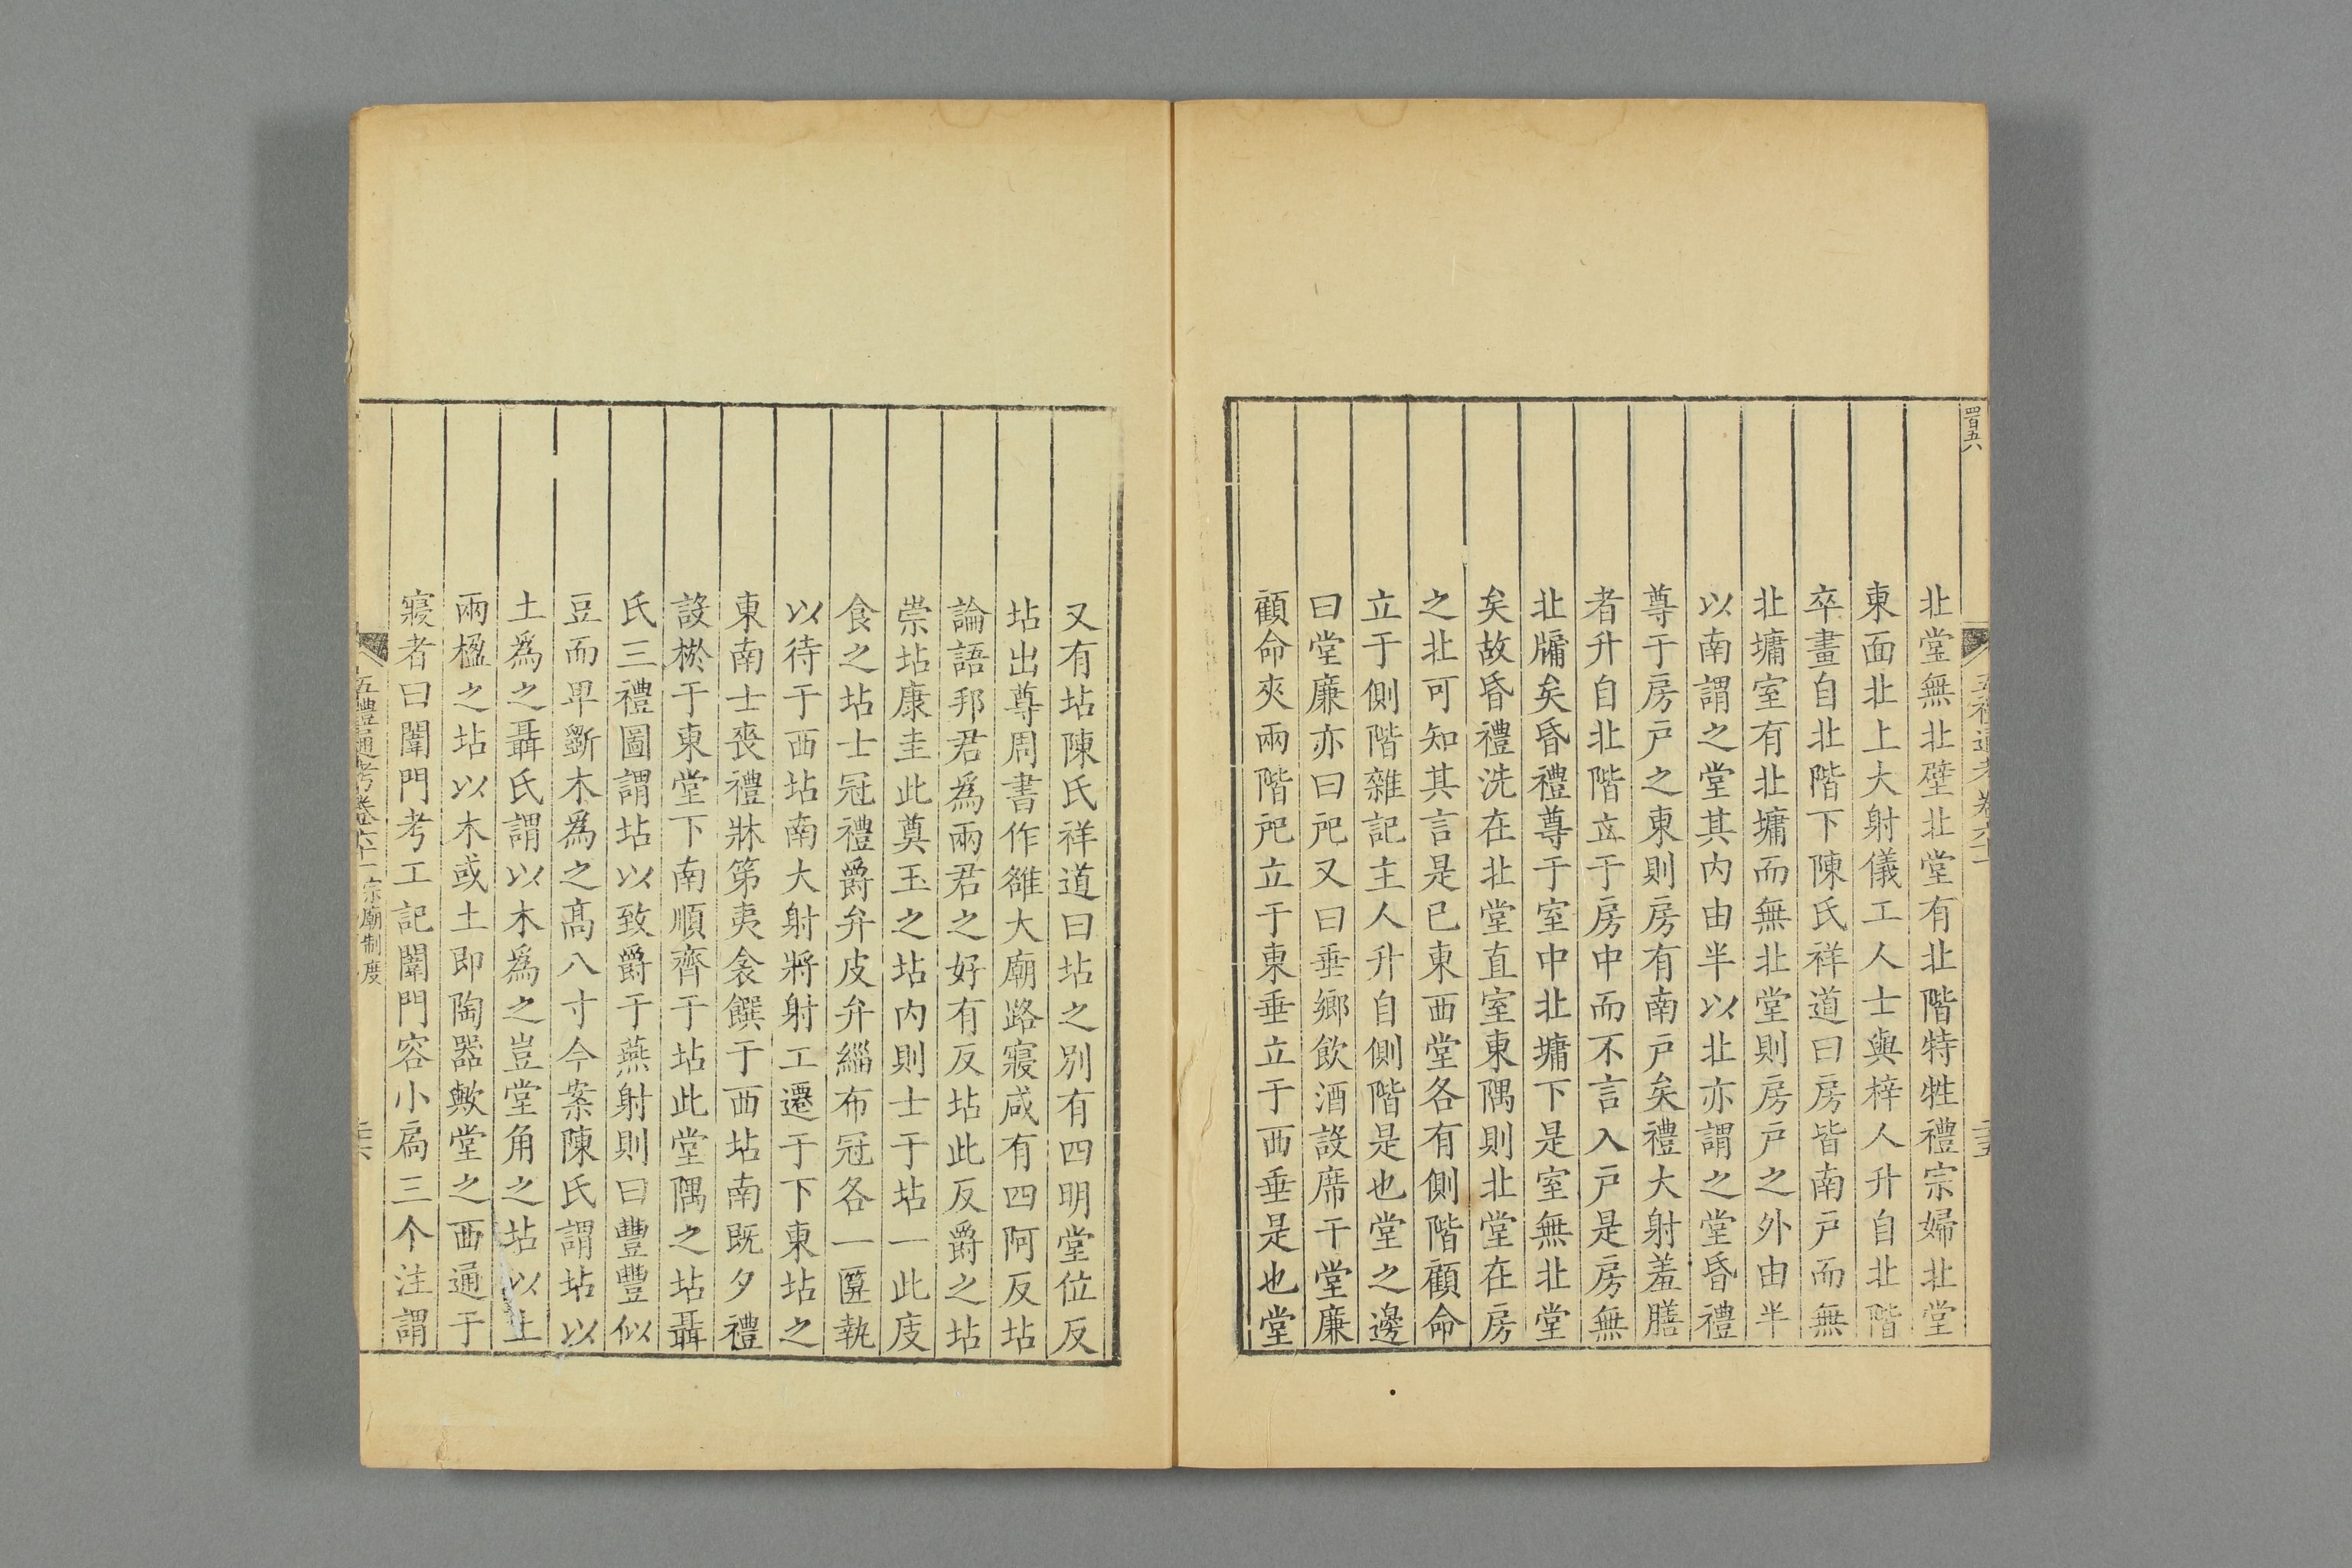 四百五八
五禮通考卷六十一
二十五
北堂無北壁北堂有北階特牲禮宗婦北堂
東面北上大射儀工人士與梓人升自北階
卒畫自北階下陳氏祥道曰房皆南戸而無
北墉室有北墉而無北堂則房戸之外由半
以南謂之堂其内由半以北亦謂之堂昏禮
尊于房戸之東則房有南戸矣禮大射羞膳
者升自北階立于房中而不言入戸是房無
北牖矣昏禮尊于室中北墉下是室無北堂
矣故昏禮洗在北堂直室東隅則北堂在房
之北可知其言是已東西堂各有側階顧命
立于側階雜記主人升自側階是也堂之邊
曰堂廉亦曰戺又曰垂鄉飲酒設席于堂廉
顧命夾兩階戺立于東垂立于西垂是也堂
又有坫陳氏祥道曰坫之別有四明堂位反
坫出尊周書作雒大廟路寢咸有四阿反坫
論語邦君爲兩君之好有反坫此反爵之坫
崇坫康圭此奠玉之坫内則士于坫一此庋
食之坫士冠禮爵弁皮弁緇布冠各一匴執
以待于西坫南大射將射工遷于下東坫之
東南士喪禮牀笫夷衾饌于西坫南既夕禮
設棜于東堂下南順齊于坫此堂隅之坫聶
氏三禮圖謂坫以致爵于燕射則曰豐豐似
豆而卑斵木爲之髙八寸今案陳氏謂坫以
土爲之聶氏謂以木爲之豈堂角之坫以土
兩楹之坫以木或土即陶器歟堂之西通于
寢者曰闈門考工記闈門容小扃三个注謂
五禮通考卷六十一 宗廟制度
二十六